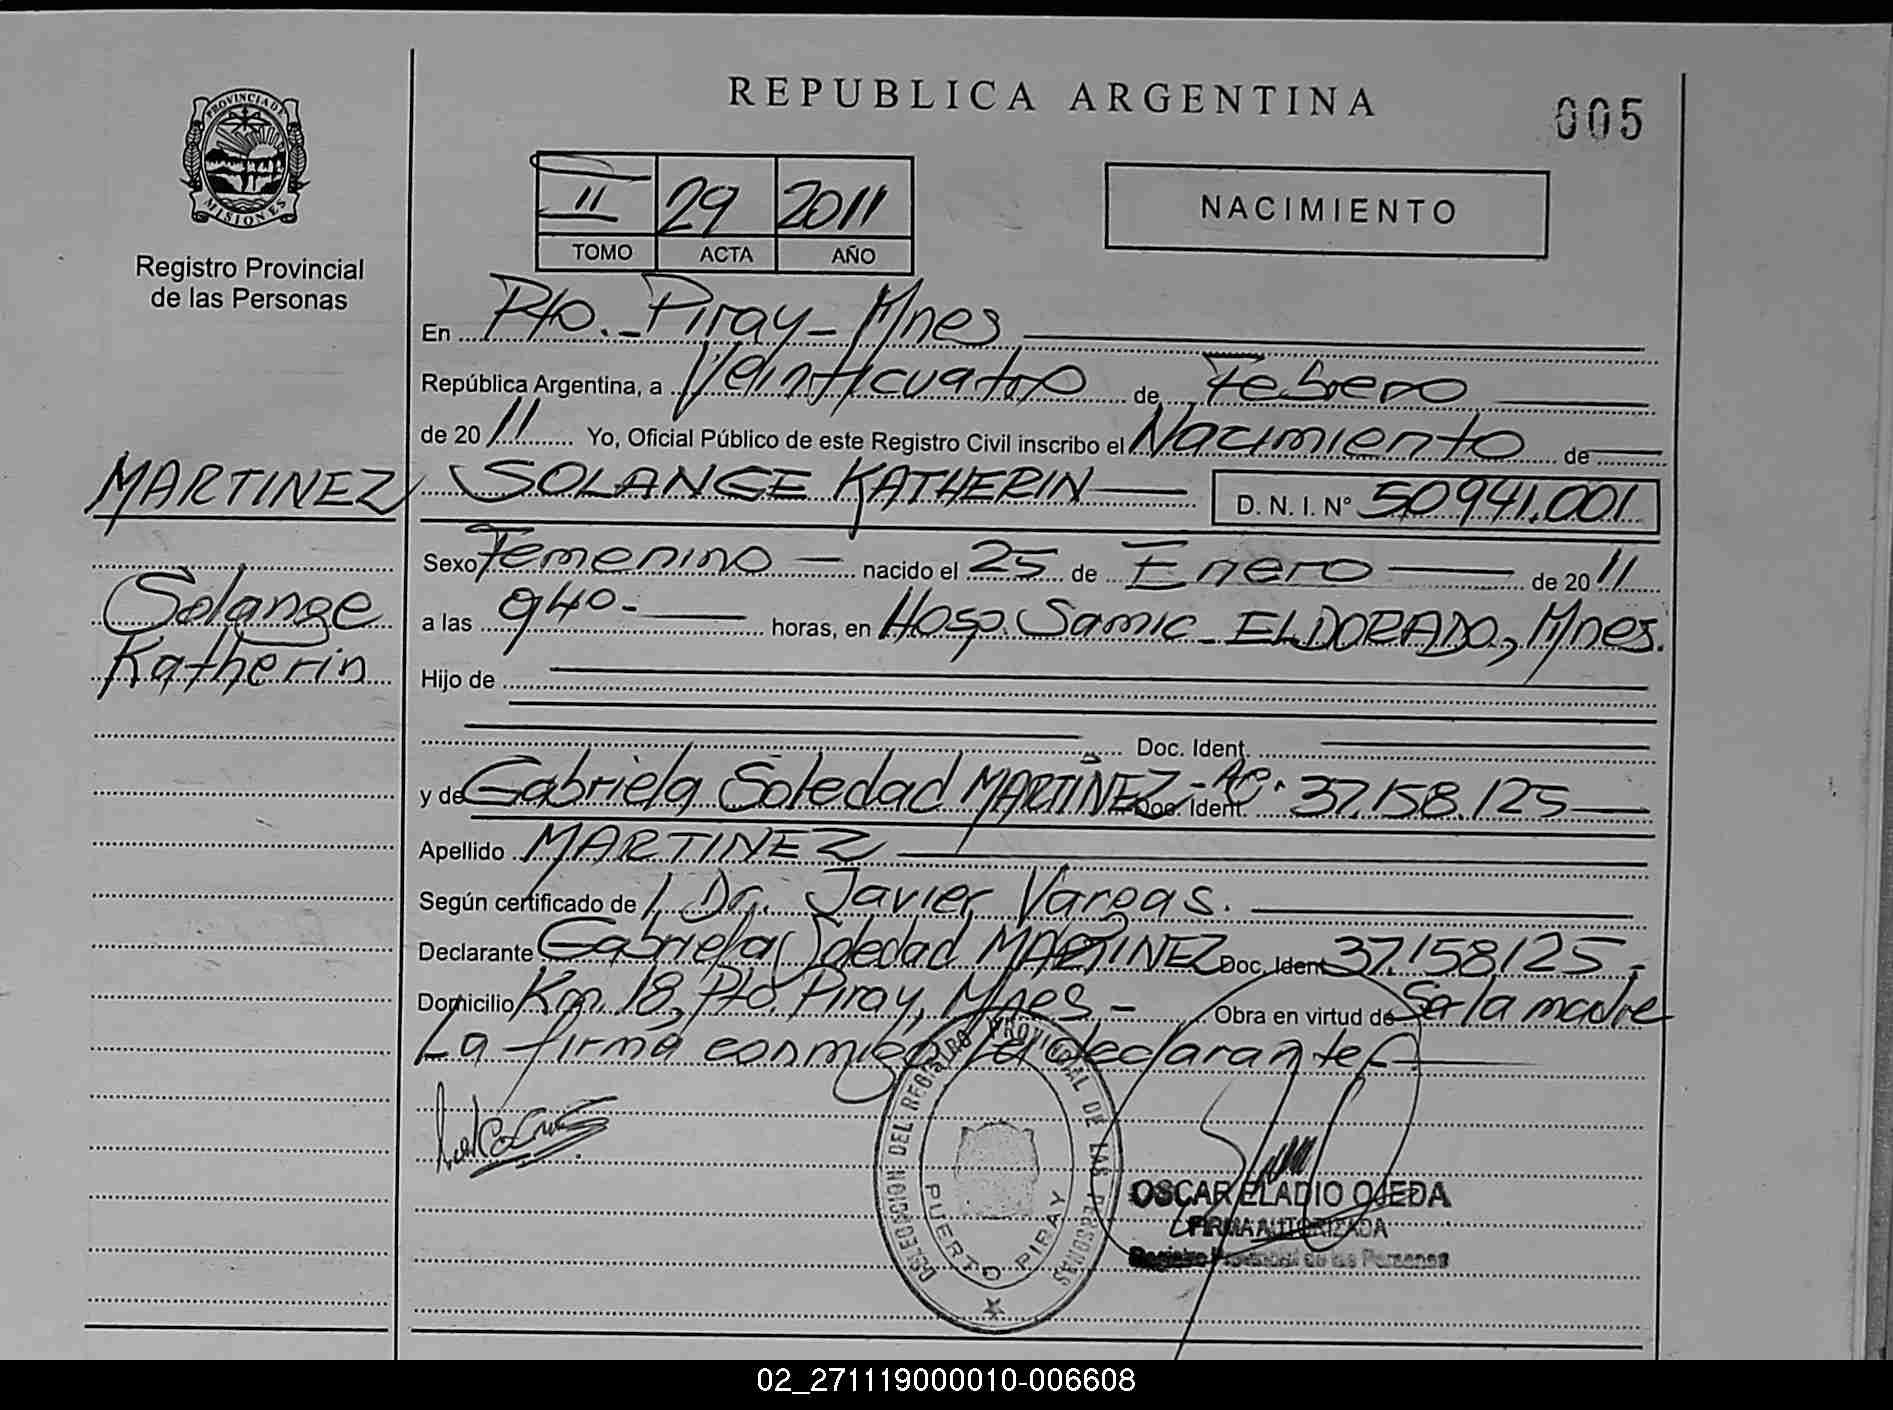 REPUBLICA ARGENTINA
005
PROVINCIA DE MISIONES
Registro Provincial
de las Personas
II 29 2011
TOMO ACTA AÑO
NACIMIENTO
En Pto. Piray - Mnes
República Argentina, a Veinticuatro de Febrero
de 2011 Yo, Oficial Público de este Registro Civil inscribo el Nacimiento de
MARTINEZ SOLANGE KATHERIN D. N. I. N° 50941.001
Solange
Katherin
Sexo Femenino nacido el 25 de Enero de 2011
a las 940- horas, en Hosp. Samic - ELDORADO, Mnes.
Hijo de
Doc. Ident.
y de Gabriela Soledad MARTINEZ - Doc. Ident. 37.158.125
Apellido MARTINEZ
Según certificado de Dr. Javier Vargas.
Declarante Gabriela Soledad MARTINEZ Doc. Ident. 37.158.125-
Domicilio Km. 18, Pto. Piray, Mnes - Obra en virtud de Ser la madre
La firma conmigo la declarante
DELEGACION DEL REGISTRO PROVINCIAL DE LAS PERSONAS
PUERTO PIRAY
OSCAR ELADIO OJEDA
FIRMA AUTORIZADA
Registro Provincial de las Personas
02_271119000010-006608